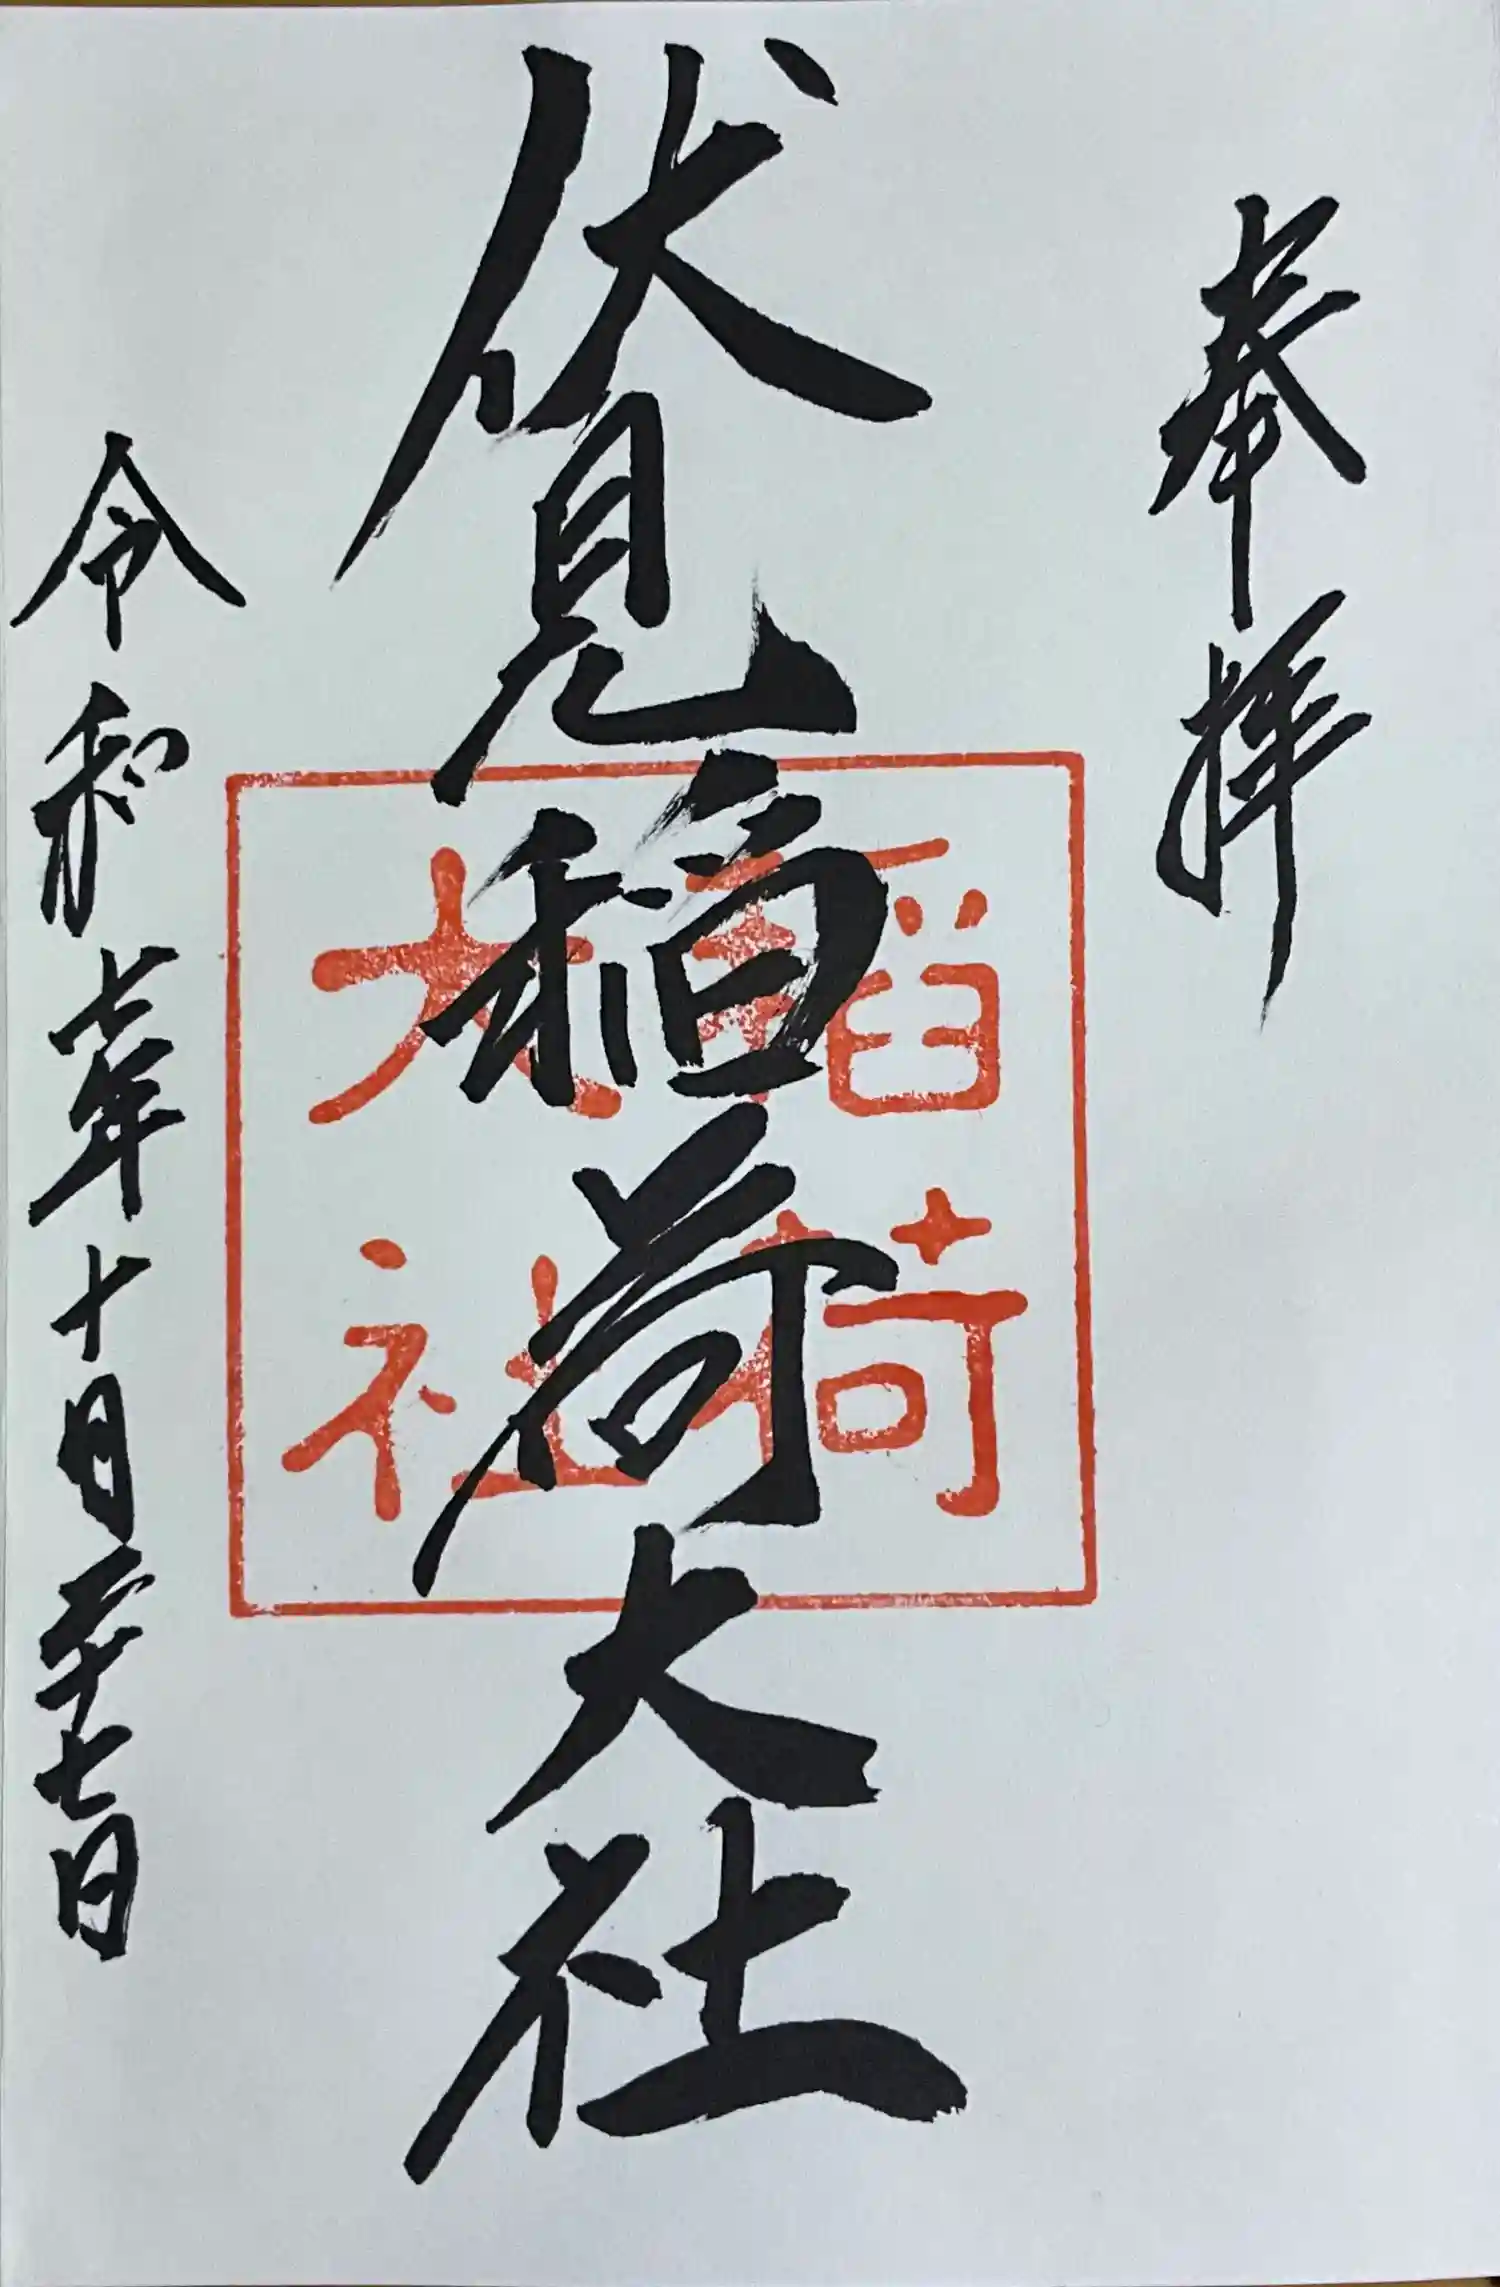 奉拝
伏見稲荷大社
令和七年十月二十七日
稻荷
大社